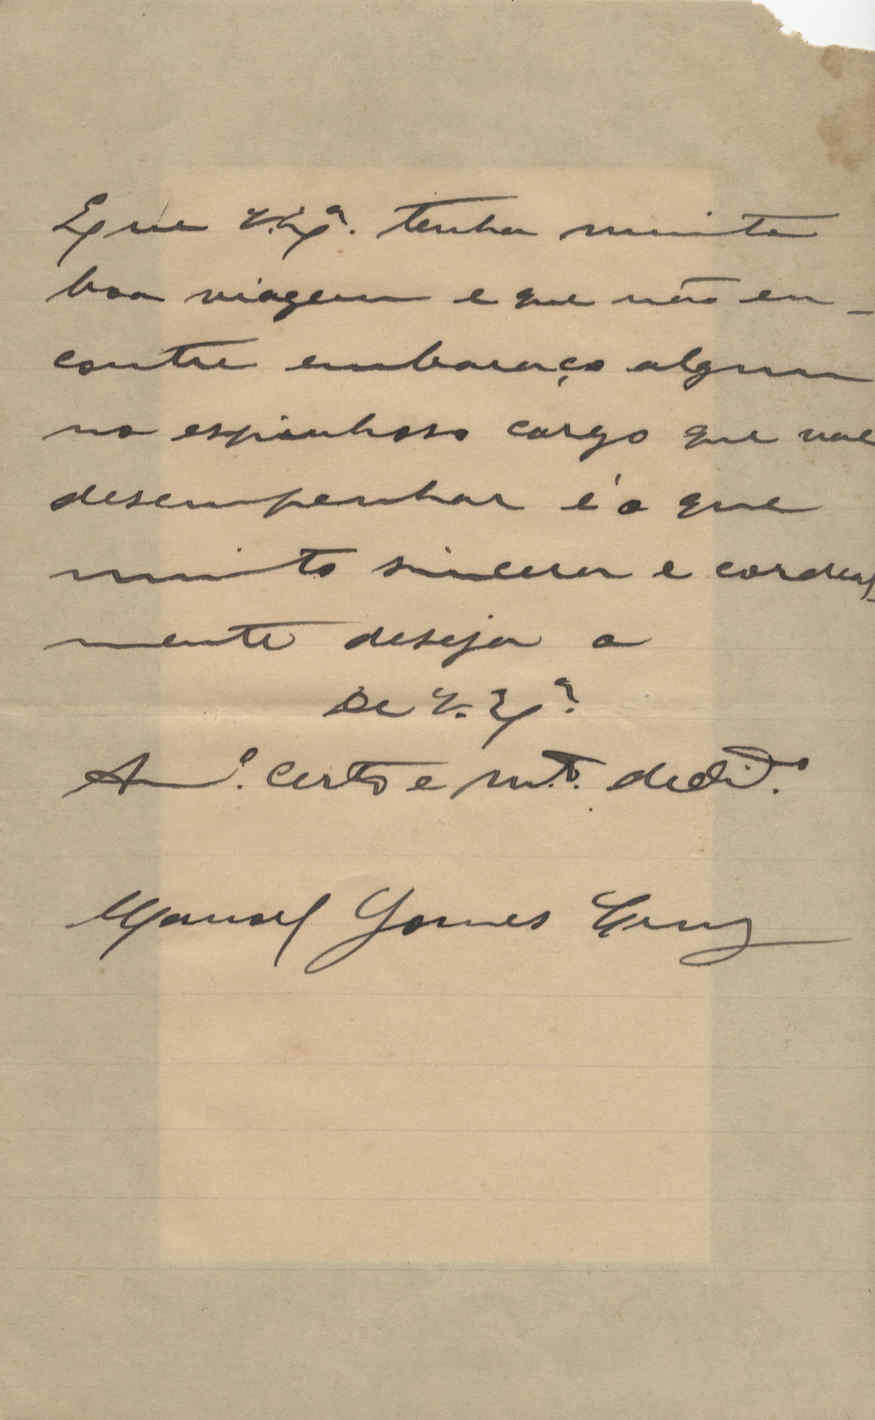 Eque V. Exª. tenha muita
boa viagem e que não en-
contre embaraço algum
no espinhoso cargo que vae
desempenhar é o que
muito sincera e cordeal-
mente deseja o
De V. Exª.
Amº. certo e mtº. dedicº.
Manoel Gomes Cruz